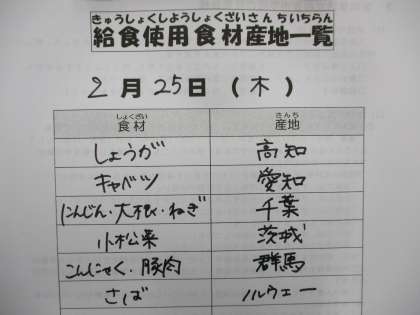 きゅうしょくしようしょくざいさんちいちらん
給食使用食材産地一覧
2月25日(木)
しょくざい さんち
食材 産地
しょうが 高知
キャベツ 愛知
にんじん・大根・ねぎ 千葉
小松菜 茨城
こんにゃく・豚肉 群馬
さば ノルウェー